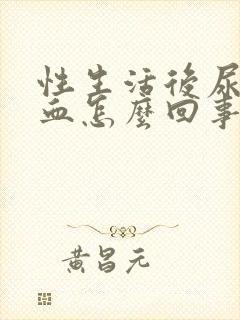 性生活後尿
血怎麼回事
黃昌元